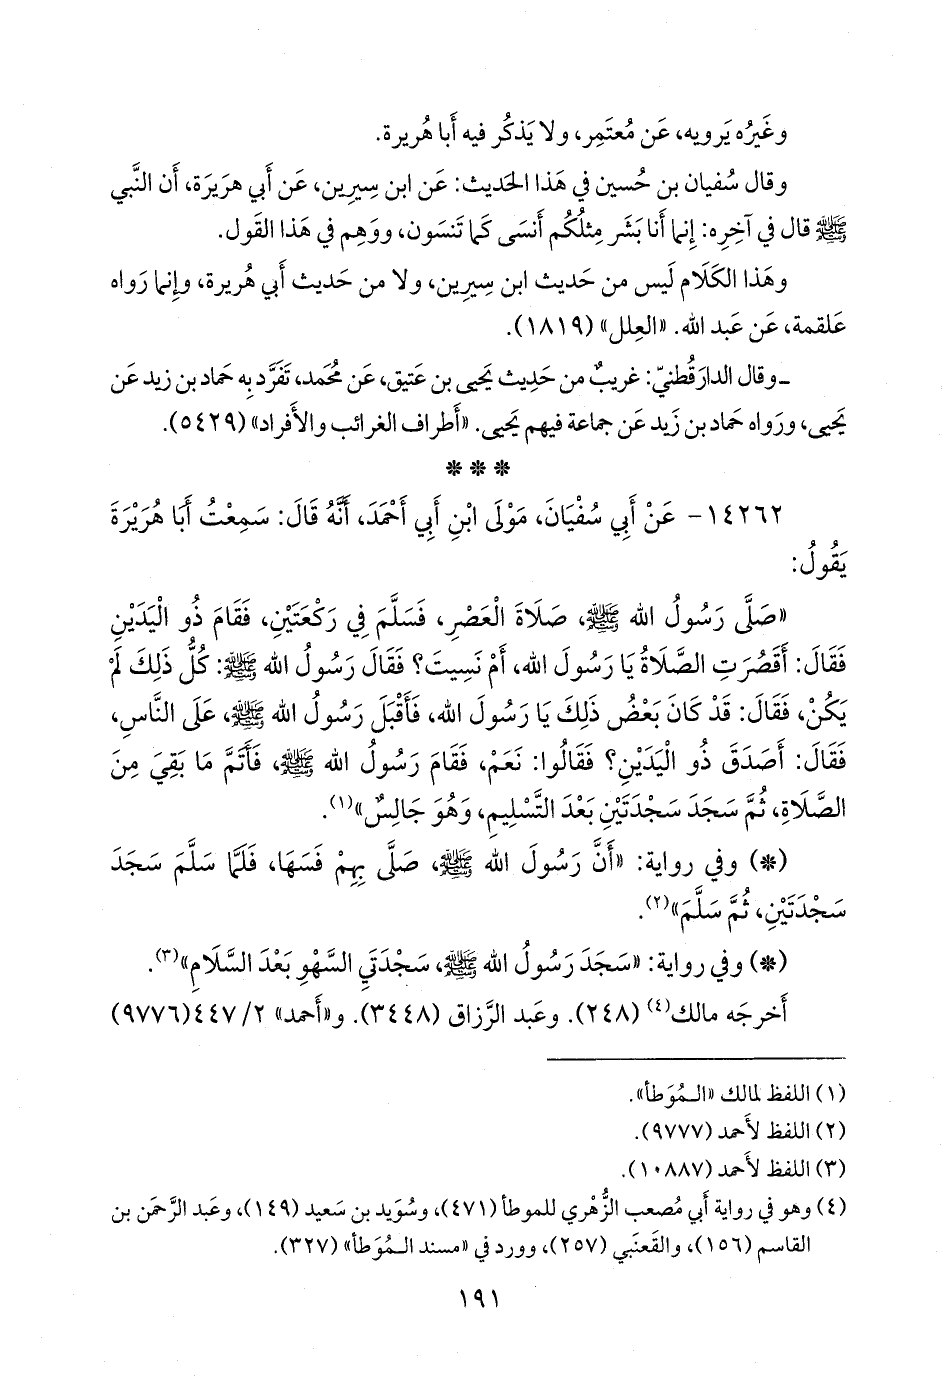 وغَيرُه يَرويه، عَن مُعتَمِر، ولا يَذكُر فيه أَبا هُريرة.
وقال سُفيان بن حُسين في هَذا الحَديث: عَن ابن سِيرِين، عَن أَبي هرَيرَة، أَن النَّبي
ﷺ قال في آخِرِه: إِنما أَنا بَشَر مِثلُكُم أَنسَى كَما تَنسَون، ووَهِم في هَذا القَول.
وهَذا الكَلَام لَيس من حَديث ابن سِيرِين، ولا من حَديث أَبي هُريرة، وإِنما رَواه
عَلقمة، عَن عَبد الله. «العِلل» (١٨١٩).
ـ وقال الدارَقُطنيّ: غريبٌ من حَدِيث يَحيى بن عَتيق، عَن مُحَمد، تَفَرَّد بِه حَماد بن زيد عَن
يَحيى، ورَواه حَماد بن زَيد عَن جماعة فيهم يَحيى. «أَطراف الغرائب والأَفراد» (٥٤٢٩).
* * *
١٤٢٦٢- عَنْ أَبِي سُفْيَانَ، مَوْلَى ابْنِ أَبِي أَحْمَدَ، أَنَّهُ قَالَ: سَمِعْتُ أَبَا هُرَيْرَةَ
يَقُولُ:
«صَلَّى رَسُولُ الله ﷺ، صَلَاةَ الْعَصْرِ، فَسَلَّمَ فِي رَكْعَتَيْنِ، فَقَامَ ذُو الْيَدَيْنِ
فَقَالَ: أَقَصُرَتِ الصَّلَاةُ يَا رَسُولَ الله، أَمْ نَسِيتَ؟ فَقَالَ رَسُولُ الله ﷺ: كُلُّ ذَلِكَ لَمْ
يَكُنْ، فَقَالَ: قَدْ كَانَ بَعْضُ ذَلِكَ يَا رَسُولَ الله، فَأَقْبَلَ رَسُولُ الله ﷺ، عَلَى النَّاسِ،
فَقَالَ: أَصَدَقَ ذُو الْيَدَيْنِ؟ فَقَالُوا: نَعَمْ، فَقَامَ رَسُولُ الله ﷺ، فَأَتَمَّ مَا بَقِيَ مِنَ
الصَّلَاةِ، ثُمَّ سَجَدَ سَجْدَتَيْنِ بَعْدَ التَّسْلِيمِ، وَهُوَ جَالِسٌ»(١).
(*) وفي رواية: «أَنَّ رَسُولَ الله ﷺ، صَلَّى بِهِمْ فَسَهَا، فَلَمَّا سَلَّمَ سَجَدَ
سَجْدَتَيْنِ، ثُمَّ سَلَّمَ»(٢).
(*) وفي رواية: «سَجَدَ رَسُولُ الله ﷺ، سَجْدَتَيِ السَّهْوِ بَعْدَ السَّلَامِ»(٣).
أَخرجَه مالك(٤) (٢٤٨). وعَبد الرَّزاق (٣٤٤٨). و«أَحمد» ٢/٤٤٧(٩٧٧٦)
(١) اللفظ لمالك «الـمُوَطأ».
(٢) اللفظ لأَحمد (٩٧٧٧).
(٣) اللفظ لأَحمد (١٠٨٨٧).
(٤) وهو في رواية أَبي مُصعب الزُّهْري للموطأ (٤٧١)، وسُوَيد بن سَعيد (١٤٩)، وعَبد الرَّحمَن بن
القاسم (١٥٦)، والقَعنَبي (٢٥٧)، وورد في «مسند الـمُوَطأ» (٣٢٧).
١٩١